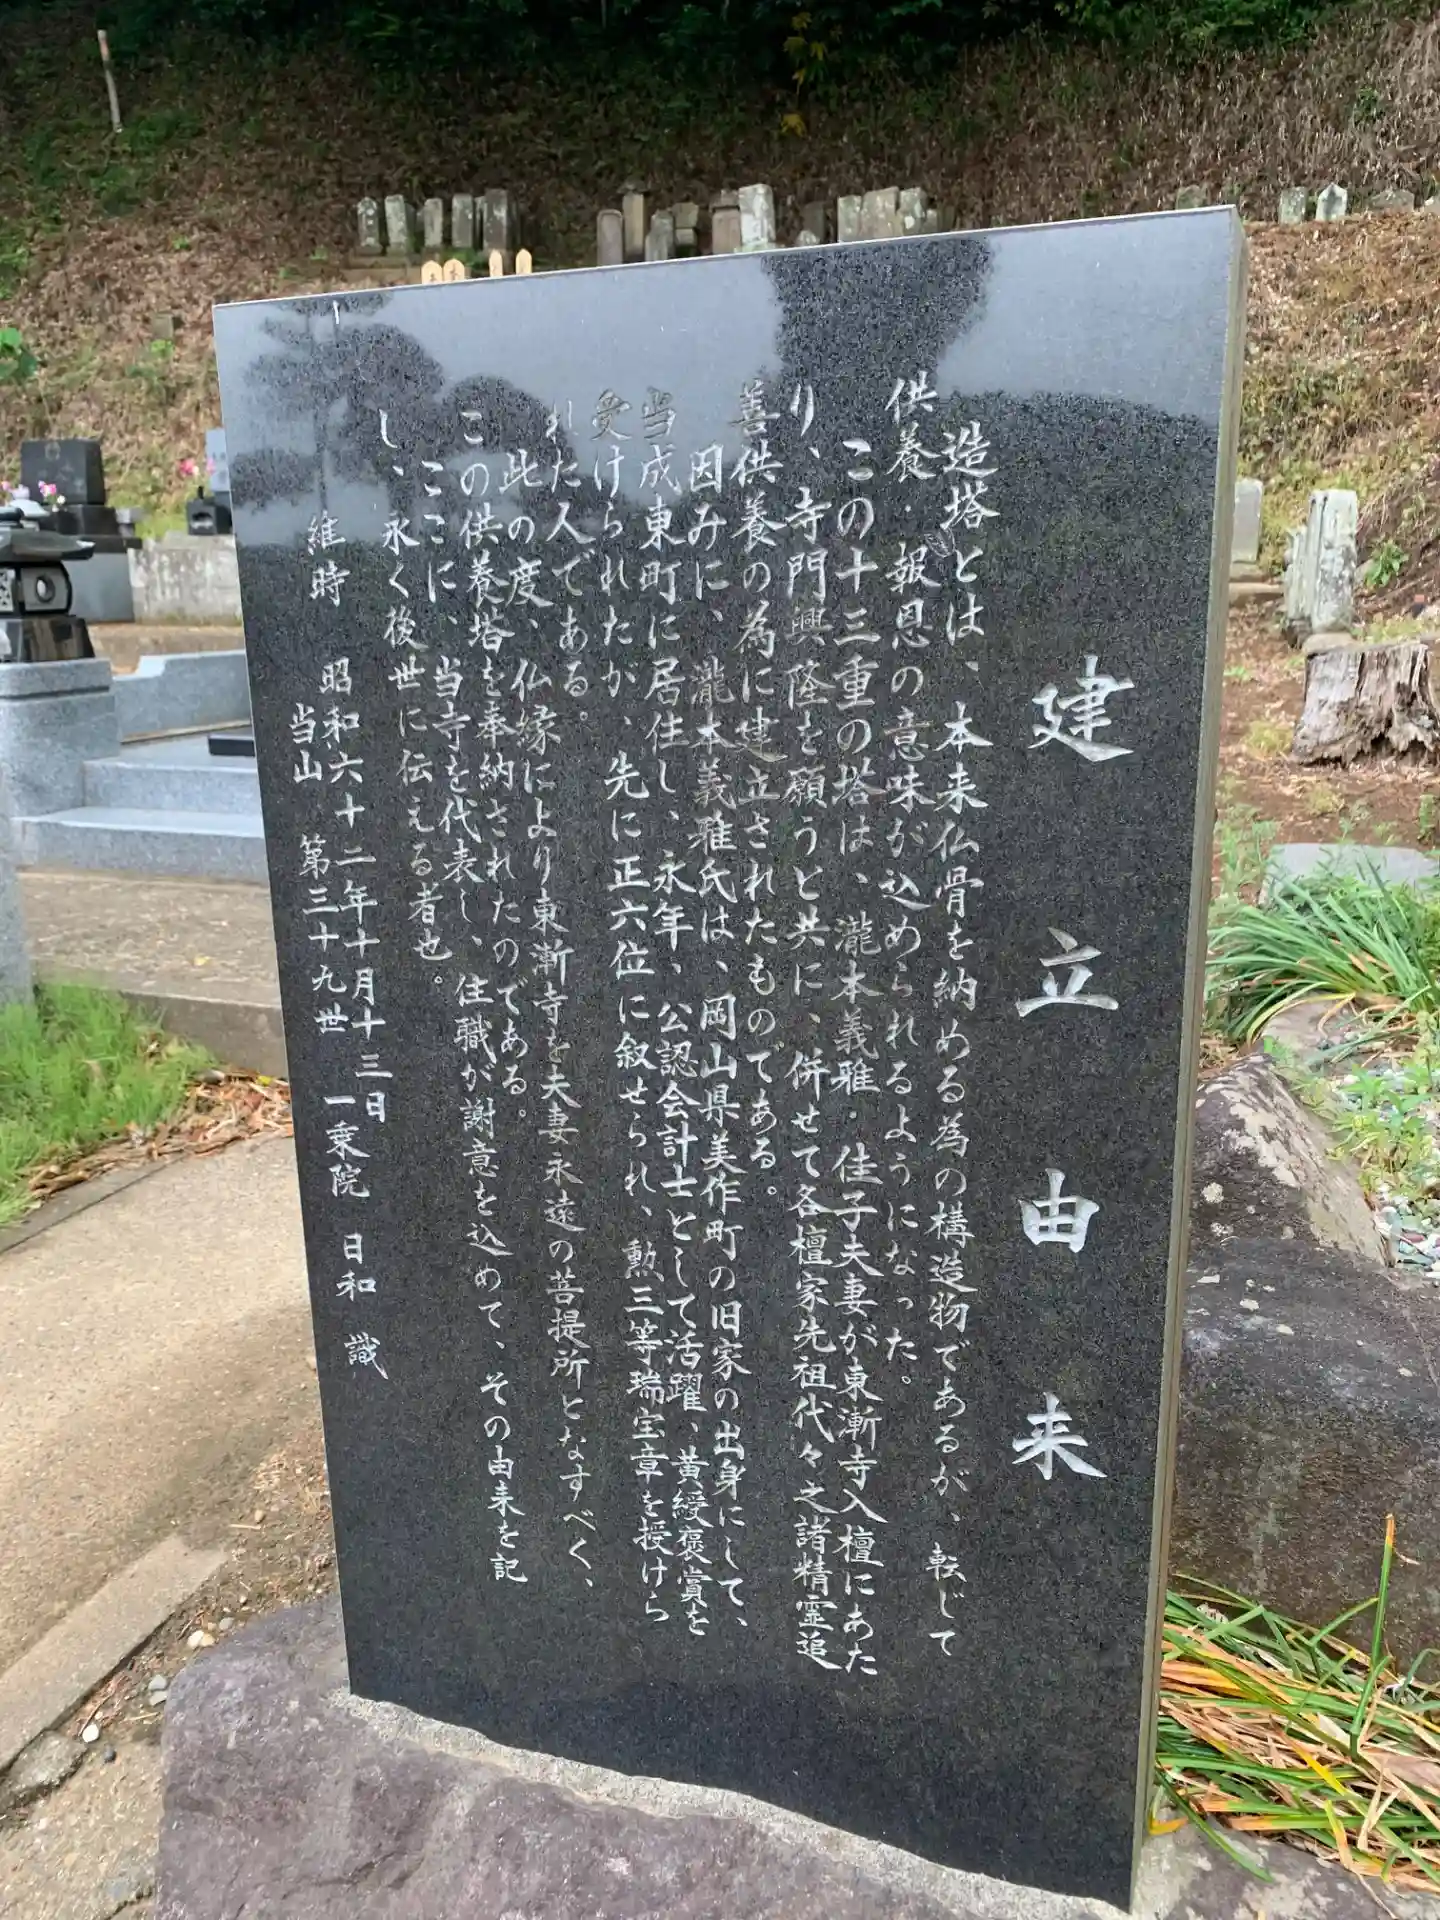 建立由来
造塔とは、本来仏骨を納める為の構造物であるが、転じて
供養・報恩の意味が込められるようになった。
この十三重の塔は、瀧本義雅・佳子夫妻が東漸寺入檀にあた
り、寺門興隆を願うと共に、併せて各檀家先祖代々之諸精霊追
善供養の為に建立されたものである。
因みに、瀧本義雅氏は、岡山県美作町の旧家の出身にして、
当成東町に居住し、永年、公認会計士として活躍、黄綬褒賞を
受けられたが、先に正六位に叙せられ、勲三等瑞宝章を授けら
れた人である。
此の度、仏縁により東漸寺を夫妻永遠の菩提所となすべく、
この供養塔を奉納されたのである。
ここに、当寺を代表し、住職が謝意を込めて、その由来を記
し、永く後世に伝える者也。
維時 昭和六十二年十月十三日
当山 第三十九世 一乗院 日和 識